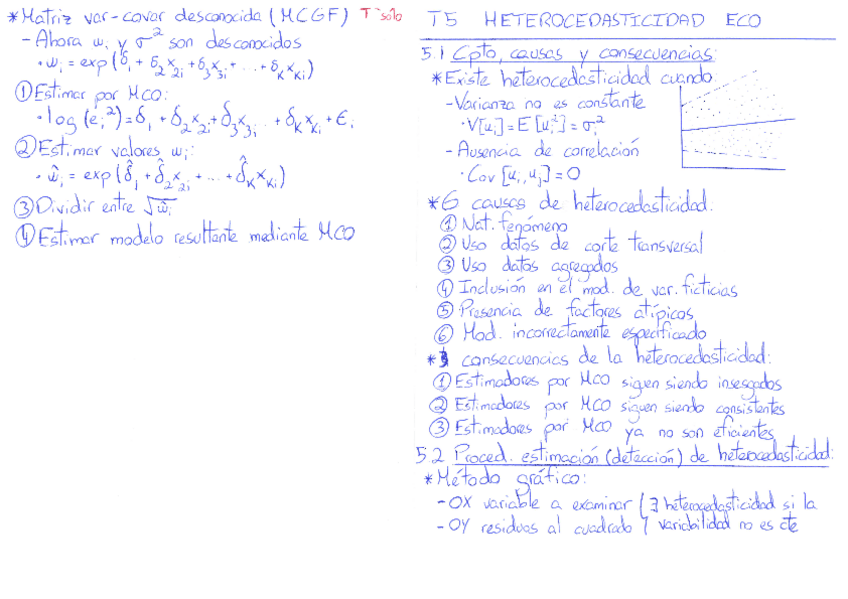 *Matriz var-covar desconocida (MCGF) Tª solo
- Ahora wᵢ y σ² son desconocidos
• wᵢ = exp (δ₁ + δ₂x₂ᵢ + δ₃x₃ᵢ + ... + δₖxₖᵢ)
① Estimar por MCO:
• log (eᵢ²) = δ₁ + δ₂x₂ᵢ + δ₃x₃ᵢ ... + δₖxₖᵢ + Єᵢ
② Estimar valores wᵢ:
• ŵᵢ = exp (δ̂₁ + δ̂₂x₂ᵢ + ... + δ̂ₖxₖᵢ)
③ Dividir entre √ŵᵢ
④ Estimar modelo resultante mediante MCO
T5 HETEROCEDASTICIDAD ECO
5.1 Cpto, causas y consecuencias:
*Existe heterocedasticidad cuando:
- Varianza no es constante
• V[uᵢ] = E[uᵢ²] = σᵢ²
- Ausencia de correlación
• Cov [uᵢ, uⱼ] = 0
*6 causas de heterocedasticidad:
① Nat. fenómeno
② Uso datos de corte transversal
③ Uso datos agregados
④ Inclusión en el mod. de var. ficticias
⑤ Presencia de factores atípicos
⑥ Mod. incorrectamente especificado
*3 consecuencias de la heterocedasticidad:
① Estimadores por MCO siguen siendo insesgados
② Estimadores por MCO siguen siendo consistentes
③ Estimadores por MCO ya no son eficientes
5.2 Proced. estimación (detección) de heterocedasticidad:
*Método gráfico:
- OX variable a examinar { ∃ heterocedasticidad si la
- OY residuos al cuadrado } variabilidad no es cte